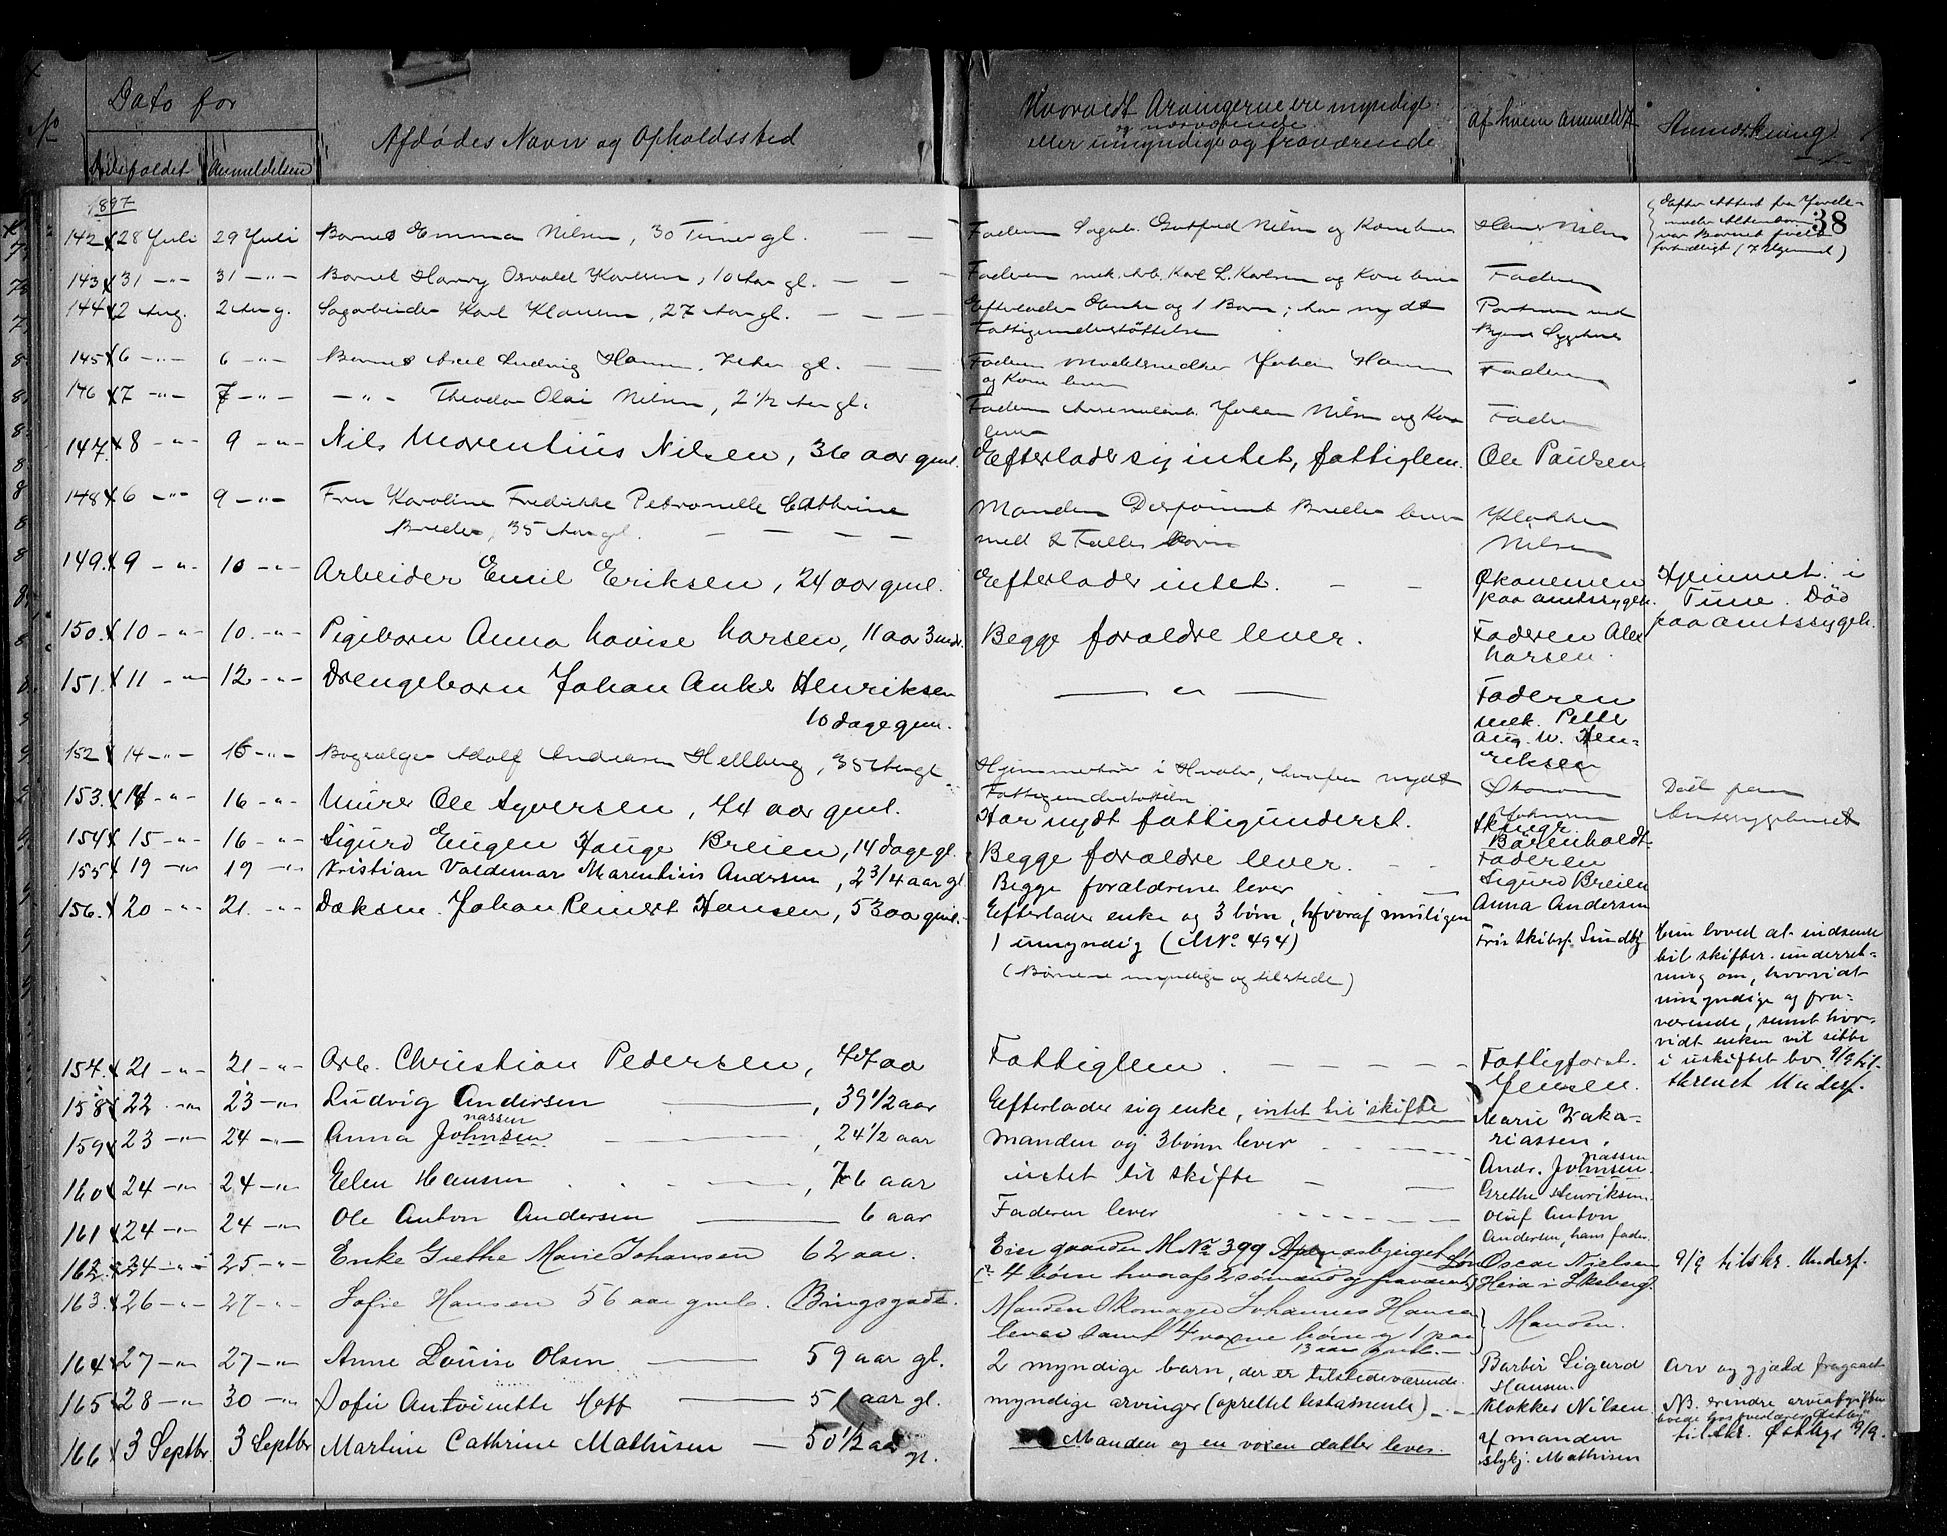 No
Dato for
Dødsfaldet
Anmeldelsen
Afdødes Navn og Opholdssted
Hvorvidt Arvingerne ere myndige
og nærværende
eller umyndige og fraværende
af hvem anmeldt
Anmærkning
38
1897
142 28 Juli 29 Juli Barnet Emma Nilsen, 30 Timer gl. Faderen Sagarb. Nilsen og Kone lever
143 31 31 Barnet Harry Osvald Karlsen, 10 Aar gl. Faderen mek. Arb. Karl L. Karlsen og Kone lever Faderen
144 2 Aug. 2 Aug. Sagarbeider Karl Klausen, 27 Aar gl. Efterlader Enke og 1 Barn; har nydt
Fattigunderstøttelse
Byens Sygehus
145 6 6 Barnet Axel Ludvig Hansen, gl. Faderen Modelsnedker Johan Hansen Faderen
og Kone lever
146 7 7 Theodor Olai Nilsen, 2 1/2 Aar gl. Faderen Johan Nilsen og Kone Faderen
lever
147. 8 9 Nils Marentius Nilsen, 36 aar gml. Efterlader sig intet, fattiglem. Ole Paulsen
148 6 9 Fru Karoline Fredrikke Petronelle Cathrine Manden Disponent Breder lever Klokker
Breder, 35 Aar gl. med 2 Fælles Børn Nilsen
149. 9 10 Arbeider Emil Eriksen, 24 aar gml. Efterlader intet. Økonomen Hjemmet i
paa amtssygeh. Tune. Død
paa amtssygeh.
150. 10 10. Pigebarn Anna Lovise Larsen, 11 aar 3 mdr. Begge forældre lever. Faderen Alex
Larsen.
151. 11 12 Drengebarn Johan Anker Henriksen Faderen
10 dage gml. mek. Petter
Aug. W. Hen=
riksen
152 14 16 Adolf Andreasen Hellberg, 35 Aar gl. Hjemmehør i Hvaler, nydt Økonom
Fattigunderstøttelse Johnsen
153. 14 16 Murer Ole Syversen, 74 aar gml. Har nydt fattigunderst. Død paa
Amtssygehuset
154 15 16 Sigurd Eugen Hauge Breien, 14 dage gl. Begge forældre lever. Faderen
Sigurd Breien
155 19 19 Kristian Valdemar Marentius Andersen, 2 3/4 aar gl. Begge forældrene lever Anna Andersen
156. 20 21. Døksm. Johan Reinert Hansen, 53 aar gml. Efterlader enke og 3 børn, hvoraf muligen
1 umyndig (MNo 494) Sundby
(Børnene myndige og tilstede)
Hun loved at indsende
til skifter. underret-
ning om, hvorvidt
umyndige og fra-
værende, samt hvor-
vidt enken vil sidde
i uskiftet bo. 9/9 til-
skrevet Undersf.
154. 21 21 Arb. Christian Pedersen, 44 aa Fattiglem. Fattigforst.
Jensen.
158 22 23 Ludvig Andersen, 39 1/2 aar Efterlader sig enke, intet til skifte Marie Zaka-
riassen,
159 23 24 Anna Johnsen, 24 1/2 aar Manden og 3 børn lever Andr. Johnsen
nassen
nassen
160 24 24 Elen Hansen, 76 aar intet til skifte Grethe Henriksen.
161 24 24 Ole Anton Andersen 6 aar Faderen lever Oluf Anton
Andersen, hans fader.
162. 24 25. Enke Grethe Marie Johansen 62 aar. Eier gaarden MNo 399 Oscar Nielsen 9/9 tilskr. Undersf.
4 børn hvoraf 2 og fraværende
163. 26 27 Sofie Hansen 56 aar gml. Bingsgade. Manden Skomager Johannes Hansen Manden.
lever samt 4 voxne børn og 1 paa
13 aar gml.
164 27 27 Anne Louise Olsen 59 aar gl. 2 myndige barn, der er tilstedeværende. Barber Sigurd Arv og gjæld fragaaet
Hansen.
165 28 30 Sofie Antoinette Hoff 51 aar gl. myndige arvinger (oprettet testamente) Klokker Nilsen NB. erindre arveafgiften
tilskr. 9/9.
166 3 Septbr. 3 Septbr Martine Cathrine Mathisen 50 1/2 aar gl. Manden og en voxen datter lever. af manden
Mathisen